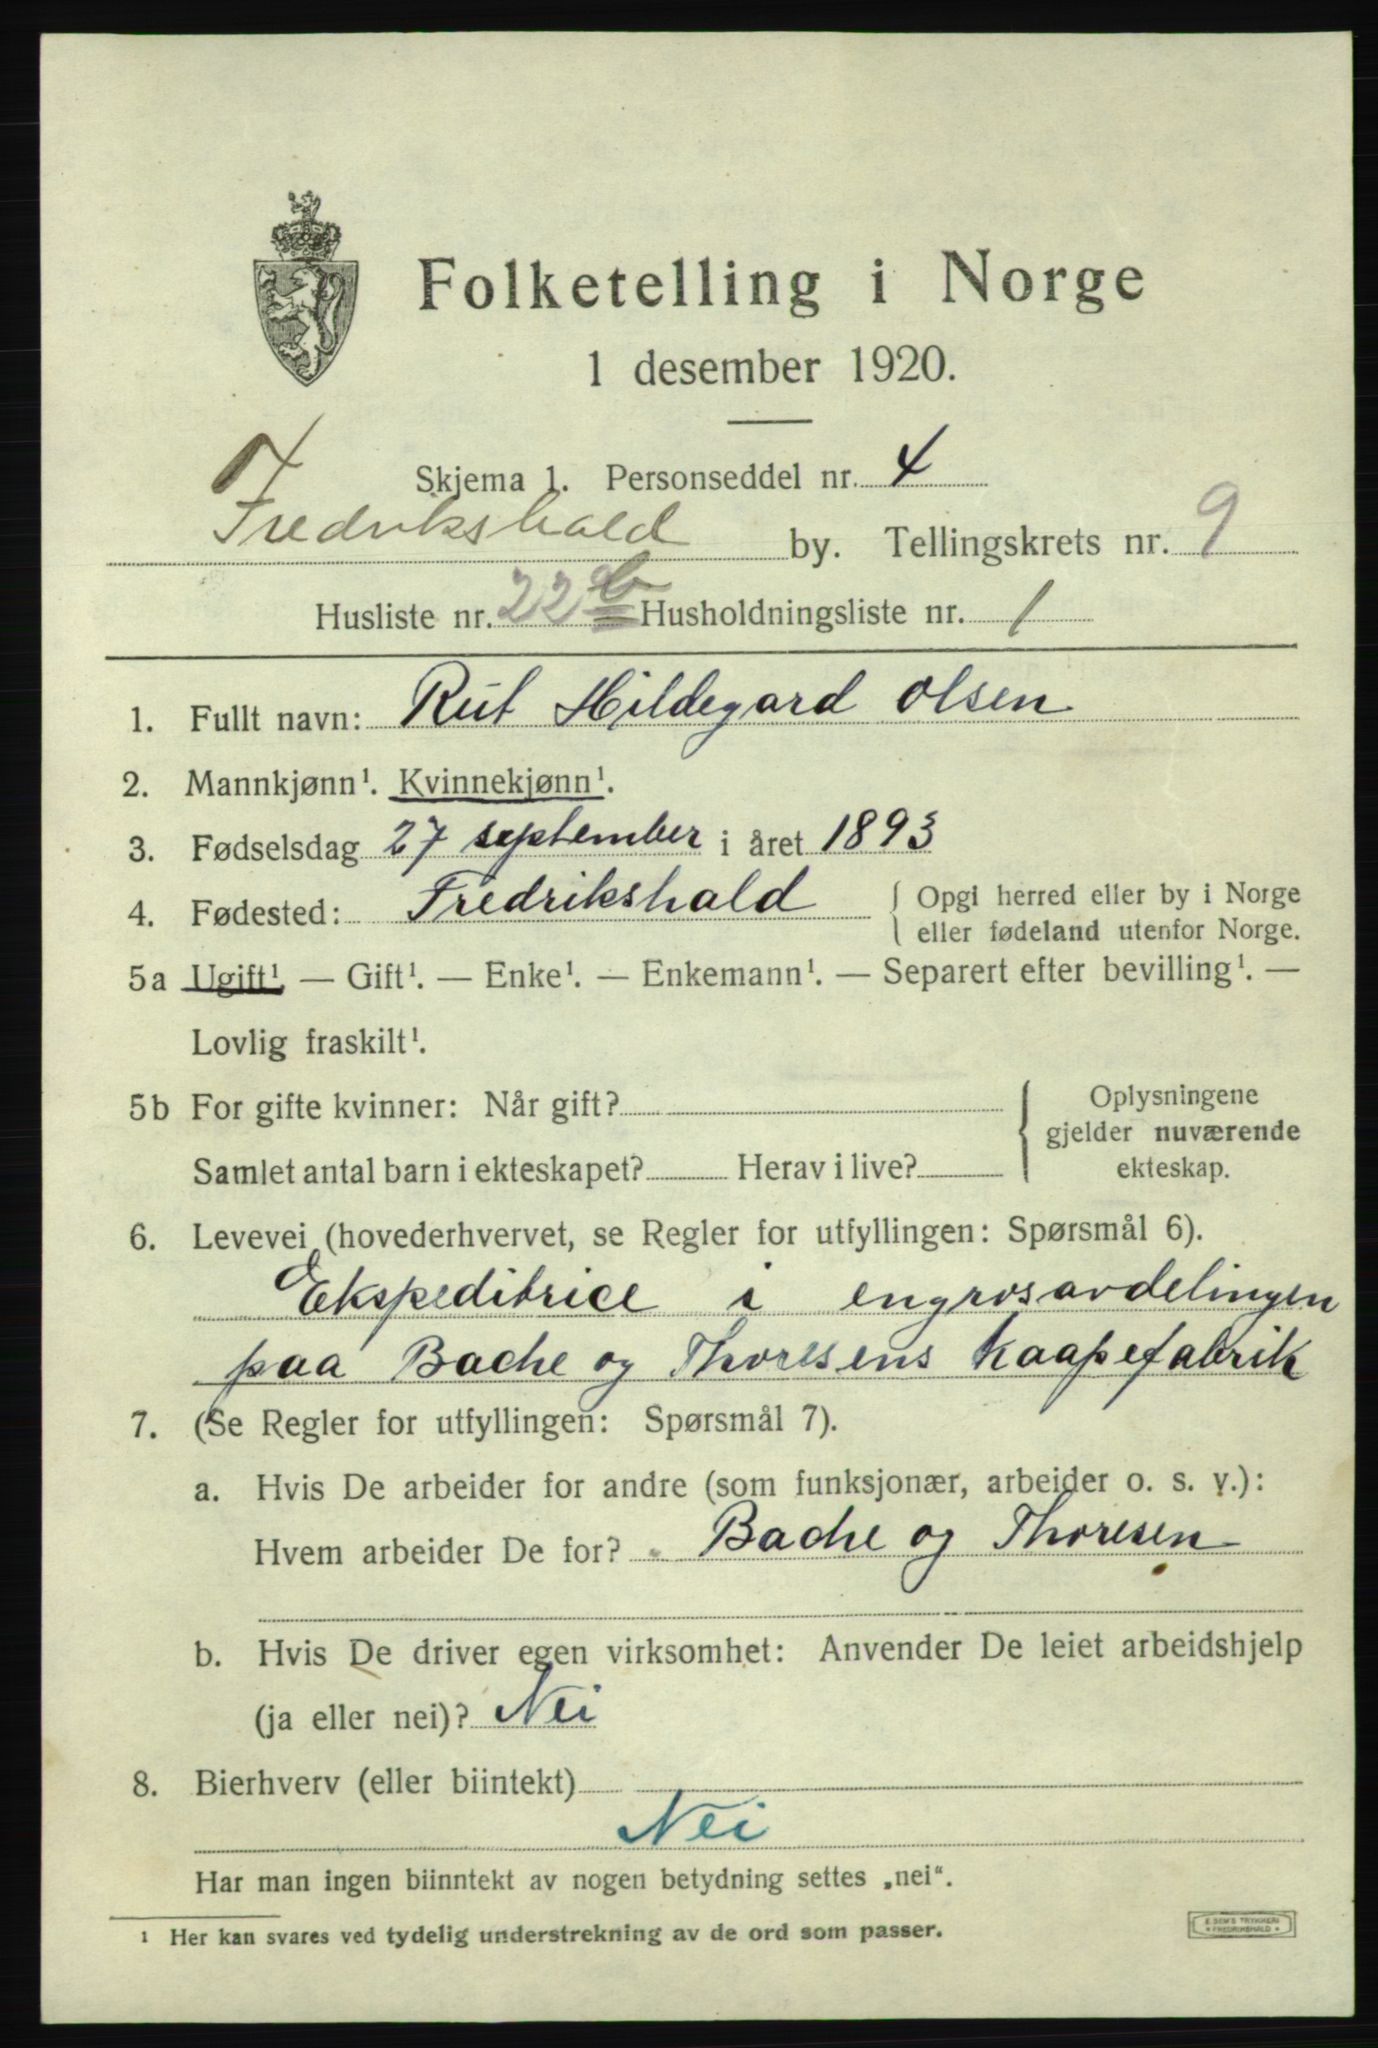 Folketelling i Norge
1 desember 1920.
Skjema 1. Personseddel nr. 4
Fredrikshald by. Tellingskrets nr. 9
Husliste nr. 22 b Husholdningsliste nr. 1
1. Fullt navn: Rut Hildegard Olsen
2. Mannkjønn¹. Kvinnekjønn¹.
3. Fødselsdag 27 september i året 1893
4. Fødested: Fredrikshald { Opgi herred eller by i Norge
eller fødeland utenfor Norge.
5a Ugift¹. — Gift¹. — Enke¹. — Enkemann¹. — Separert efter bevilling¹. —
Lovlig fraskilt¹.
5b For gifte kvinner: Når gift?
Samlet antal barn i ekteskapet? Herav i live?
{ Oplysningene
gjelder nuværende
ekteskap.
6. Levevei (hovederhvervet, se Regler for utfyllingen: Spørsmål 6).
Ekspeditrice i engrosavdelingen
paa Bache og Thoresens kaapefabrik
7. (Se Regler for utfyllingen: Spørsmål 7).
a. Hvis De arbeider for andre (som funksjonær, arbeider o. s. v.):
Hvem arbeider De for? Bache og Thoresen
b. Hvis De driver egen virksomhet: Anvender De leiet arbeidshjelp
(ja eller nei)? Nei
8. Bierhverv (eller biintekt)
Nei
Har man ingen biinntekt av nogen betydning settes „nei“.
¹ Her kan svares ved tydelig understrekning av de ord som passer.
E. SEM'S TRYKKERI
• FREDRIKSHALD •